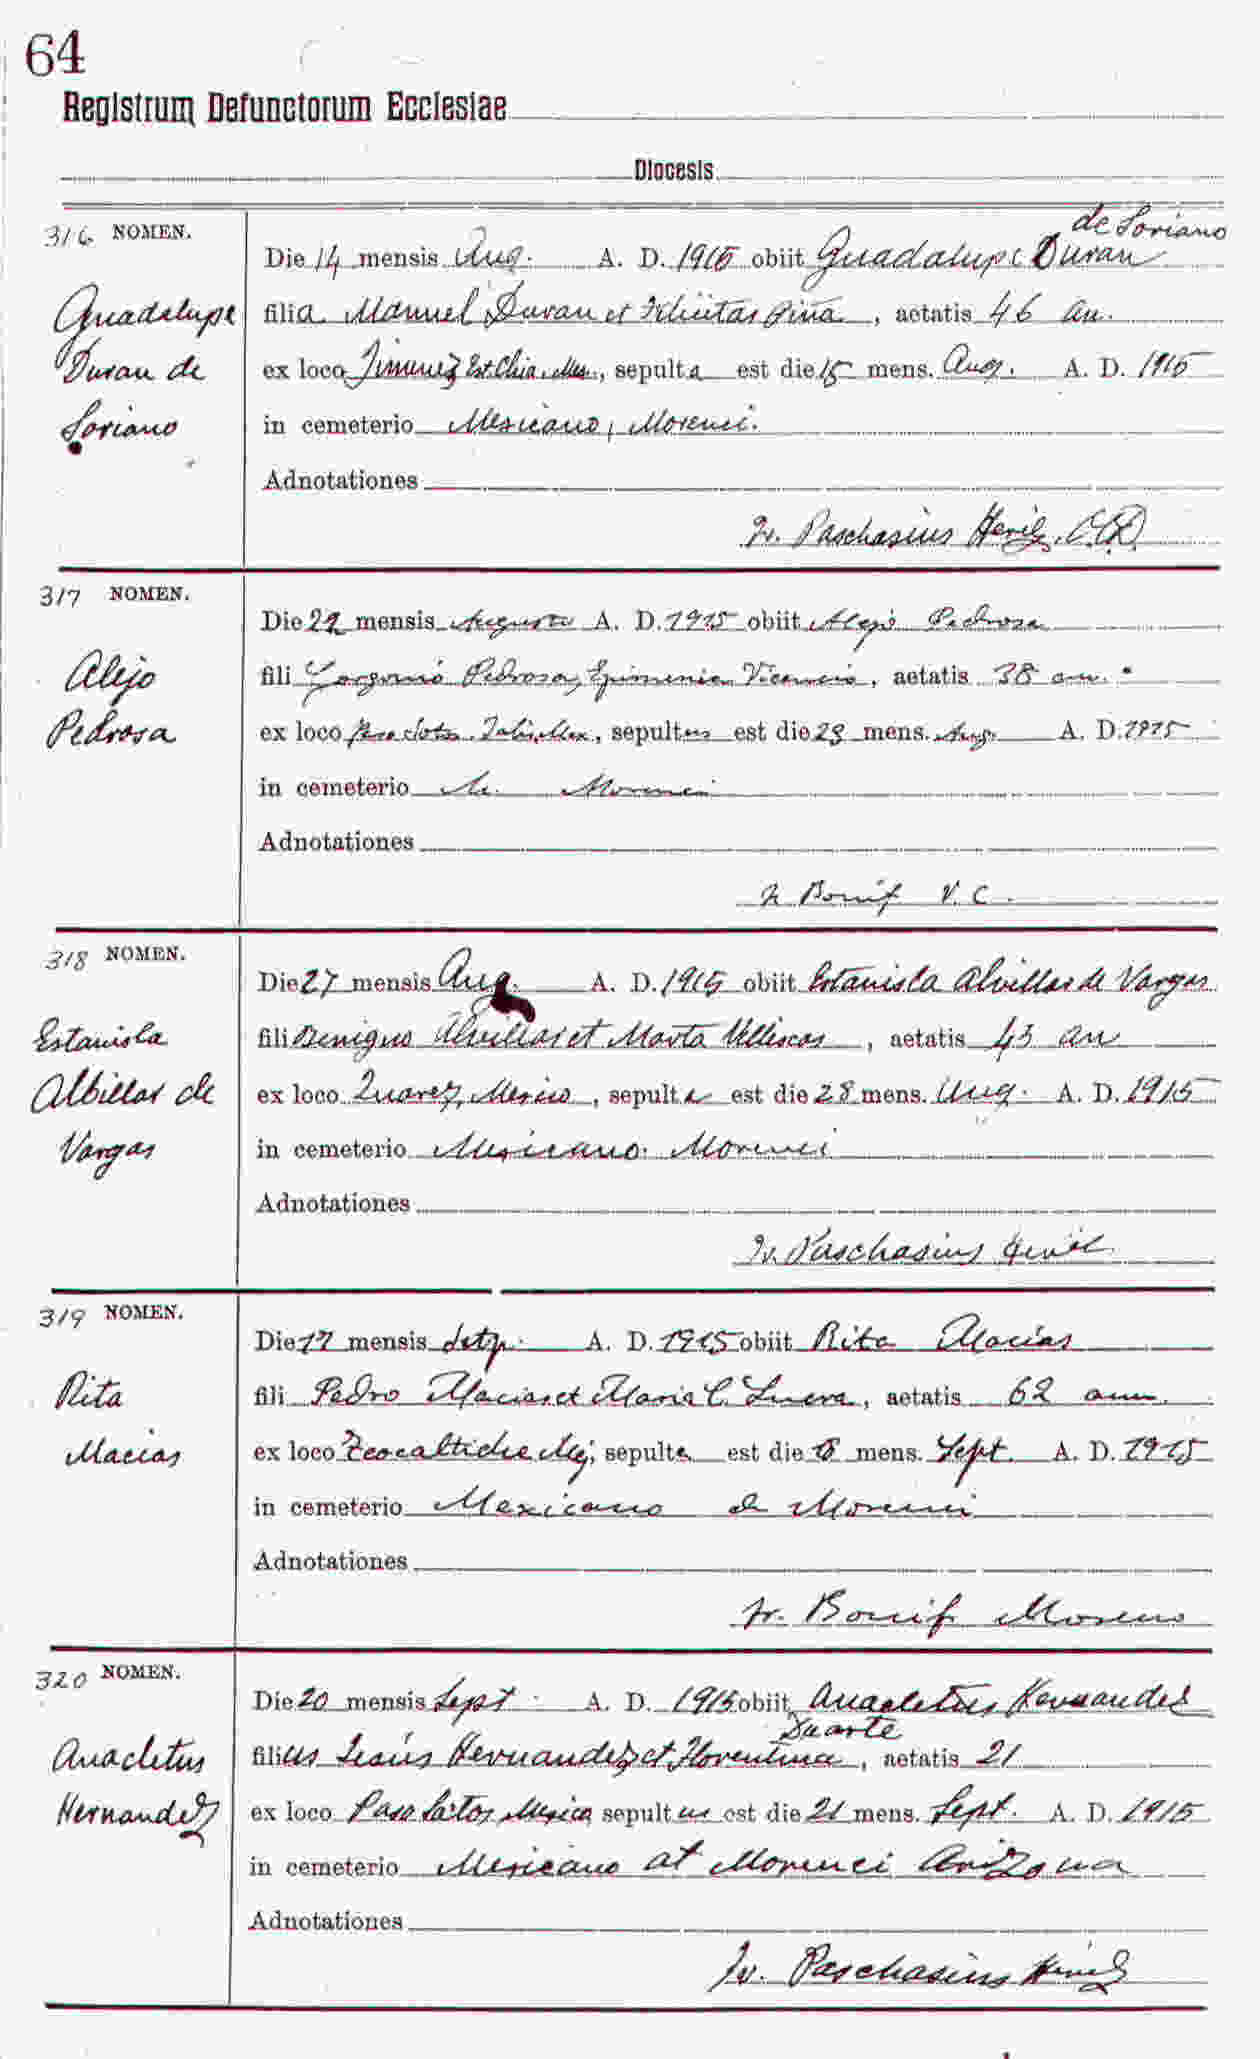 64
Registrum Defunctorum Ecclesiae
Diocesis
316 NOMEN.
Guadalupe
Duran de
Soriano
de Soriano
Die 14 mensis Aug. A. D. 1915 obiit Guadalupe Duran
filia Manuel Duran et Felicitas Piña, aetatis 46 an.
ex loco Jimenez Est. Chia. Mex., sepulta est die 15 mens. Aug. A. D. 1915
in cemeterio Mexicano, Morenci.
Adnotationes
Fr. Paschasius
317 NOMEN.
Alejo
Pedrosa
Die 22 mensis Augusti A. D. 1915 obiit Alejo Pedrosa
fili Pedrosa, Epimenia, aetatis 38 ann.
ex loco, sepultus est die 23 mens. Aug. A. D. 1915
in cemeterio M. Morenci
Adnotationes
Fr Bonif V. C.
318 NOMEN.
Estanisla
Albillar de
Vargas
Die 27 mensis Aug. A. D. 1915 obiit Estanisla Alvillar de Vargas
fili Benigno Alvillar et Marta, aetatis 43 an
ex loco Juarez, Mexico, sepulta est die 28 mens. Aug. A. D. 1915
in cemeterio Mexicano. Morenci
Adnotationes
Fr. Paschasius
319 NOMEN.
Rita
Macias
Die 17 mensis Setp. A. D. 1915 obiit Rita Macias
fili Pedro Macias et Maria C., aetatis 62 ann.
ex loco Teocaltiche Mej, sepulta est die mens. Sept. A. D. 1915
in cemeterio Mexicano de Morenci
Adnotationes
Fr. Bonif Moreno
320 NOMEN.
Anacletus
Hernandez
Die 20 mensis Sept. A. D. 1915 obiit Anacletus Hernandez
Duarte
filius Jesús Hernandez et Florentina, aetatis 21
ex loco Paso Sotos Mexico sepultus est die 21 mens. Sept. A. D. 1915
in cemeterio Mexicano at Morenci Arizona
Adnotationes
Fr. Paschasius